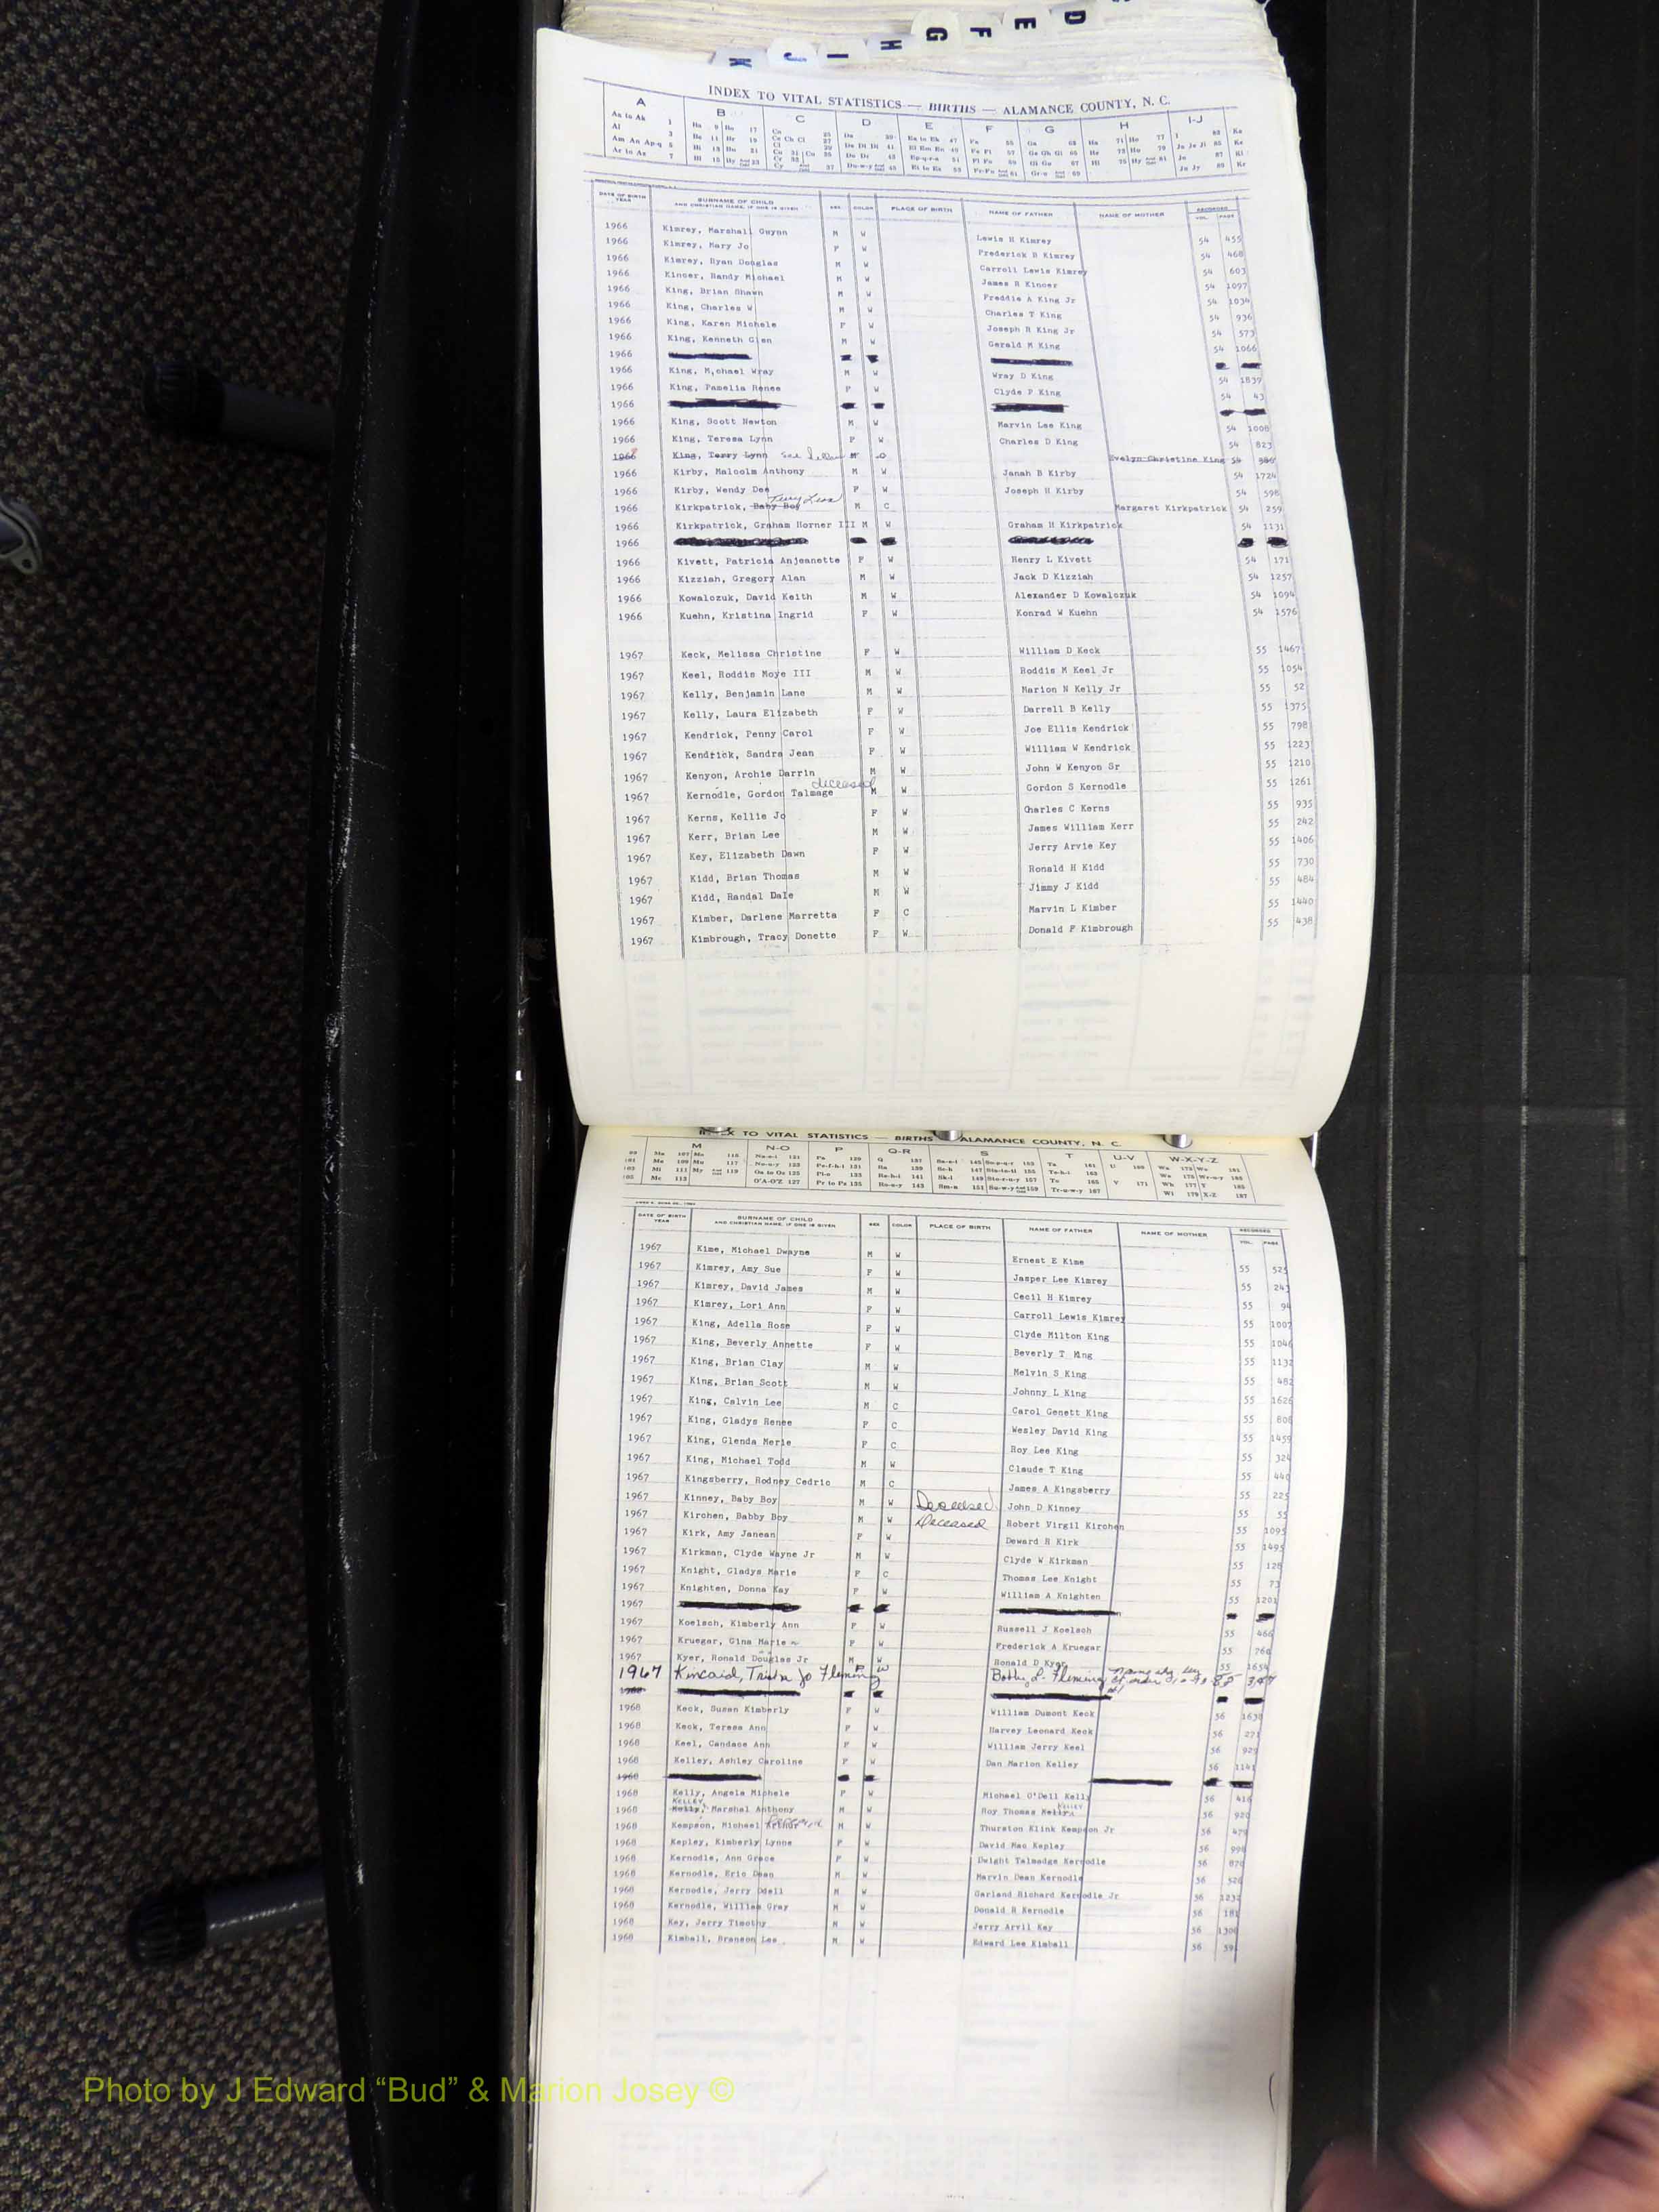 D
E
F
G
H
I
J
K
INDEX TO VITAL STATISTICS — BIRTHS — ALAMANCE COUNTY, N. C.
A B C D E F G H I-J
DATE OF BIRTH YEAR SURNAME OF CHILD AND CHRISTIAN NAME, IF ONE IS GIVEN SEX COLOR PLACE OF BIRTH NAME OF FATHER NAME OF MOTHER RECORDED VOL. PAGE
1966 Kimrey, Marshall Gwynn M W Lewis H Kimrey 54 455
1966 Kimrey, Mary Jo F W Frederick B Kimrey 54 468
1966 Kimrey, Ryan Douglas M W Carroll Lewis Kimrey 54 603
1966 Kincer, Randy Michael M W James R Kincer 54 1097
1966 King, Brian Shawn M W Freddie A King Jr 54 1034
1966 King, Charles W M W Charles T King 54 936
1966 King, Karen Michele F W Joseph R King Jr 54 573
1966 King, Kenneth Glen M W Gerald M King 54 1066
1966
1966 King, M,chael Wray M W Wray D King 54 1839
1966 King, Pamelia Renee F W Clyde P King 54 43
1966
1966 King, Scott Newton M W Marvin Lee King 54 1008
1966 King, Teresa Lynn F W Charles D King 54 823
King, Terry Lynn Evelyn Christine King 54
1966 Kirby, Malcolm Anthony M W Janah B Kirby 54 1724
1966 Kirby, Wendy Dee F W Joseph H Kirby 54 598
1966 Kirkpatrick, Baby Boy M C Margaret Kirkpatrick 54 259
1966 Kirkpatrick, Graham Horner III M W Graham H Kirkpatrick 54 1131
1966
1966 Kivett, Patricia Anjeanette F W Henry L Kivett 54 171
1966 Kizziah, Gregory Alan M W Jack D Kizziah 54 1257
1966 Kowalczuk, David Keith M W Alexander D Kowalczuk 54 1094
1966 Kuehn, Kristina Ingrid F W Konrad W Kuehn 54 1576
1967 Keck, Melissa Christine F W William D Keck 55 1467
1967 Keel, Roddis Moye III M W Roddis M Keel Jr 55 1054
1967 Kelly, Benjamin Lane M W Marion N Kelly Jr 55 52
1967 Kelly, Laura Elizabeth F W Darrell B Kelly 55 1375
1967 Kendrick, Penny Carol F W Joe Ellis Kendrick 55 798
1967 Kendrick, Sandra Jean F W William W Kendrick 55 1223
1967 Kenyon, Archie Darrin M W John W Kenyon Sr 55 1210
1967 Kernodle, Gordon Talmage deceased M W Gordon S Kernodle 55 1261
1967 Kerns, Kellie Jo F W Charles C Kerns 55 935
1967 Kerr, Brian Lee M W James William Kerr 55 242
1967 Key, Elizabeth Dawn F W Jerry Arvie Key 55 1406
1967 Kidd, Brian Thomas M W Ronald H Kidd 55 730
1967 Kidd, Randal Dale M W Jimmy J Kidd 55 484
1967 Kimber, Darlene Marretta F C Marvin L Kimber 55 1440
1967 Kimbrough, Tracy Donette F W Donald F Kimbrough 55 438
TO VITAL STATISTICS — BIRTHS ALAMANCE COUNTY, N. C.
M N-O P Q-R S T U-V W-X-Y-Z
DATE OF BIRTH YEAR SURNAME OF CHILD AND CHRISTIAN NAME, IF ONE IS GIVEN SEX COLOR PLACE OF BIRTH NAME OF FATHER NAME OF MOTHER RECORDED VOL. PAGE
1967 Kime, Michael Dwayne M W Ernest E Kime 55 525
1967 Kimrey, Amy Sue F W Jasper Lee Kimrey 55 243
1967 Kimrey, David James M W Cecil H Kimrey 55 94
1967 Kimrey, Lori Ann F W Carroll Lewis Kimrey 55 1007
1967 King, Adella Rose F W Clyde Milton King 55 1046
1967 King, Beverly Annette F W Beverly T King 55 1132
1967 King, Brian Clay M W Melvin S King 55 482
1967 King, Brian Scott M W Johnny L King 55 1626
1967 King, Calvin Lee M C Carol Genett King 55 808
1967 King, Gladys Renee F C Wesley David King 55 1459
1967 King, Glenda Merie F C Roy Lee King 55 324
1967 King, Michael Todd M W Claude T King 55 440
1967 Kingsberry, Rodney Cedric M C James A Kingsberry 55 225
1967 Kinney, Baby Boy M W Deceased John D Kinney 55 55
1967 Kirchen, Babby Boy M W Deceased Robert Virgil Kirchen 55 1095
1967 Kirk, Amy Janean F W Deward R Kirk 55 1495
1967 Kirkman, Clyde Wayne Jr M W Clyde W Kirkman 55 128
1967 Knight, Gladys Marie F C Thomas Lee Knight 55 73
1967 Knighten, Donna Kay F W William A Knighten 55 1201
1967
1967 Koelsch, Kimberly Ann F W Russell J Koelsch 55 466
1967 Kruegar, Gina Marie F W Frederick A Kruegar 55 760
1967 Kyer, Ronald Douglas Jr M W Ronald D Kyer 55 1654
1967 Kincaid, Trisha Jo Fleming F W Bobby L. Fleming
1968
1968 Keck, Susan Kimberly F W William Dumont Keck 56 1630
1968 Keck, Teresa Ann F W Harvey Leonard Keck 56 271
1968 Keel, Candace Ann F W William Jerry Keel 56 929
1968 Kelley, Ashley Caroline F W Dan Marion Kelley 56 1141
1968
1968 Kelly, Angela Michele F W Michael O'Dell Kelly 56 416
1968 KELLEY Kelly, Marshal Anthony M W Roy Thomas Kelly KELLEY 56 920
1968 Kempson, Michael M W Thurston Klink Kempson Jr 56 479
1968 Kepley, Kimberly Lynne F W David Mac Kepley 56 998
1968 Kernodle, Ann Grace F W Dwight Talmadge Kernodle 56 870
1968 Kernodle, Eric Dean M W Marvin Dean Kernodle 56 520
1968 Kernodle, Jerry Odell M W Garland Richard Kernodle Jr 56 1232
1968 Kernodle, William Gray M W Donald R Kernodle 56 181
1968 Key, Jerry Timothy M W Jerry Arvil Key 56 1300
1968 Kimball, Branson Lee M W Edward Lee Kimball 56 59
Photo by J Edward “Bud” & Marion Josey ©